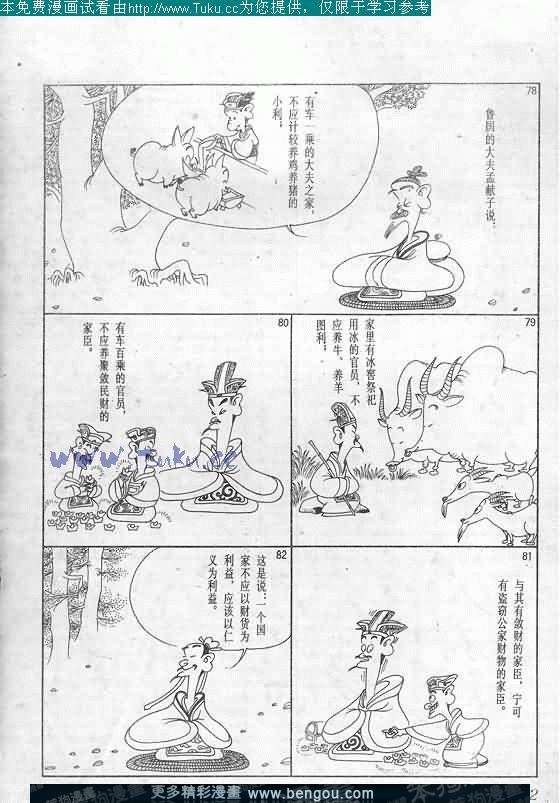 本免费漫画试看由http://www.Tuku.cc为您提供，仅限于学习参考
78
鲁国的大夫孟献子说：
有车一乘的大夫之家，
不应计较养鸡养猪的
小利；
79
家里有冰窖祭祀
用冰的官员，不
应养牛、养羊
图利；
80
有车百乘的官员，
不应养聚敛民财的
家臣。
www.Tuku.cc
81
与其有敛财的家臣，宁可
有盗窃公家财物的家臣。
82
这是说：一个国
家不应以财货为
利益，应该以仁
义为利益。
2
更多精彩漫畫 www.bengou.com